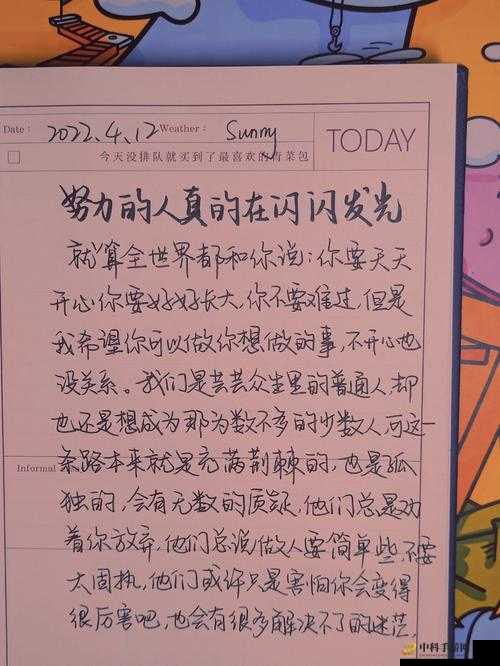 Date: 2022.4.12 Weather: Sunny
TODAY
今天没排队就买到了最喜欢的青菜包
努力的人真的在闪闪发光
就算全世界都和你说：你要天天
开心你要好好长大，你不要难过，但是
我希望你可以做你想做的事，不开心也
没关系。我们是芸芸众生里的普通人，却
也还是想成为那为数不多的少数人，可这一
条路本来就是充满荆棘的，也是孤
Informal
独的，会有无数的质疑，他们总是劝
着你放弃，他们总说做人要简单些，不要
太固执，他们或许只是害怕你会变得
很厉害吧，也会有很多解决不了的迷茫，
中科手游网